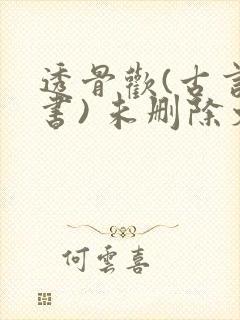 透骨歡(古言
書)未删除
何雲喜